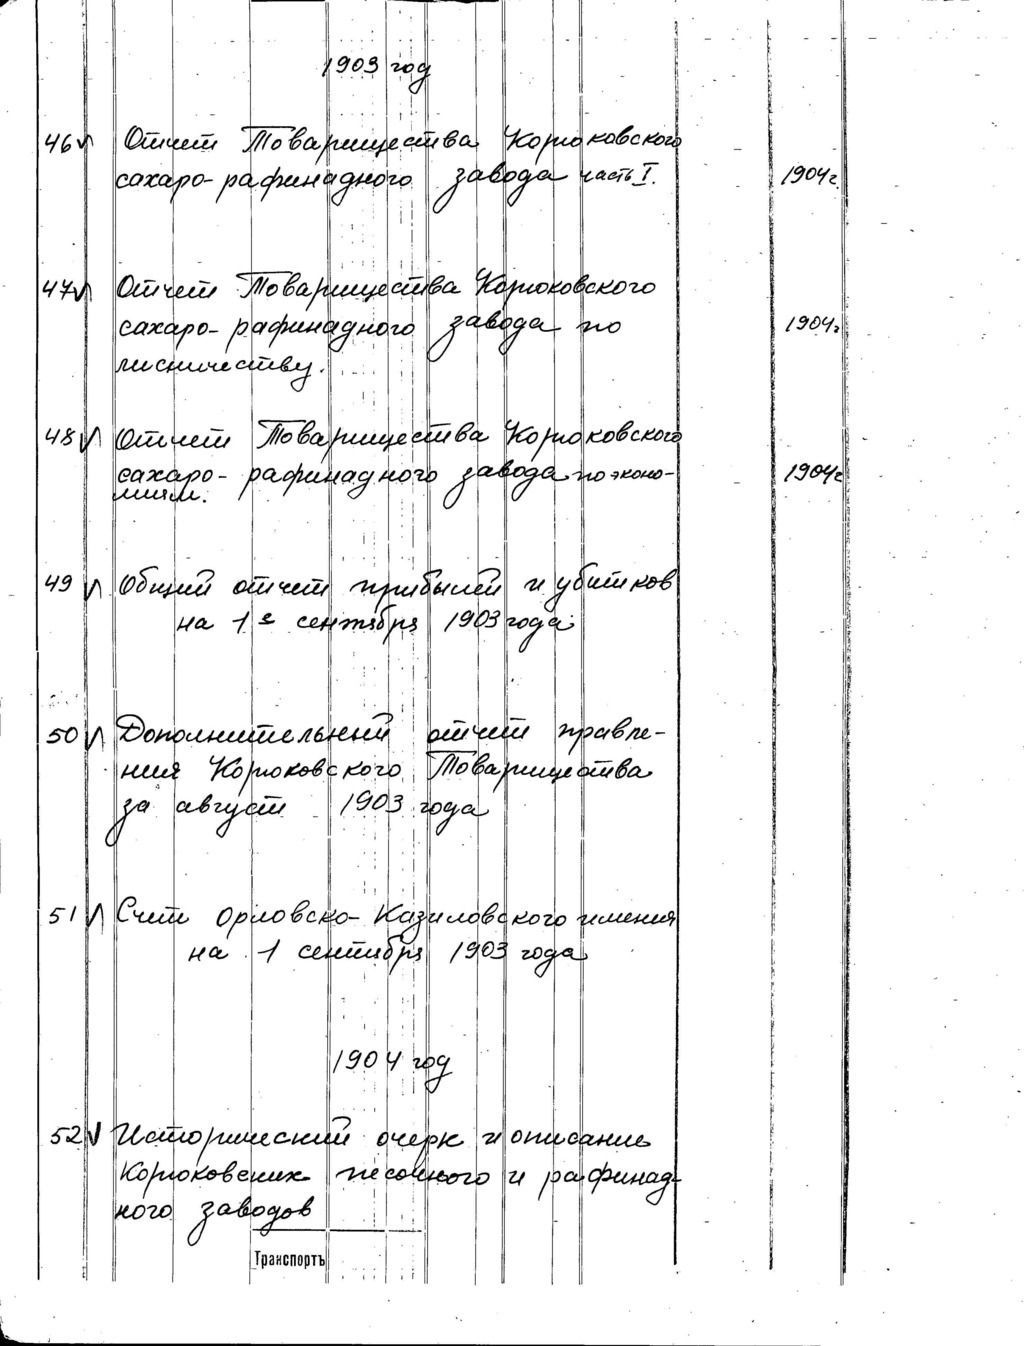 1903 год
46 Отчет Товарищества Корюковского
сахаро-рафинадного завода часть I. 1904г.
47 Отчет Товарищества Корюковского
сахаро-рафинадного завода по 1904г
лисничеству.
48 Отчет Товарищества Корюковского
сахаро-рафинадного завода по эконо- 1904г
миям.
49 Общий отчет прибылей и убитков
на 1е сентября 1903 года
50 Дополнительний отчет правле-
ния Корюковского Товарищества
за август 1903 года
51 Счет Орловско-Казиловского имения
на 1 сентября 1903 года
1904 год
52 Исторический очерк и описание
Корюковских песочного и рафинад-
ного заводов
Транспортъ